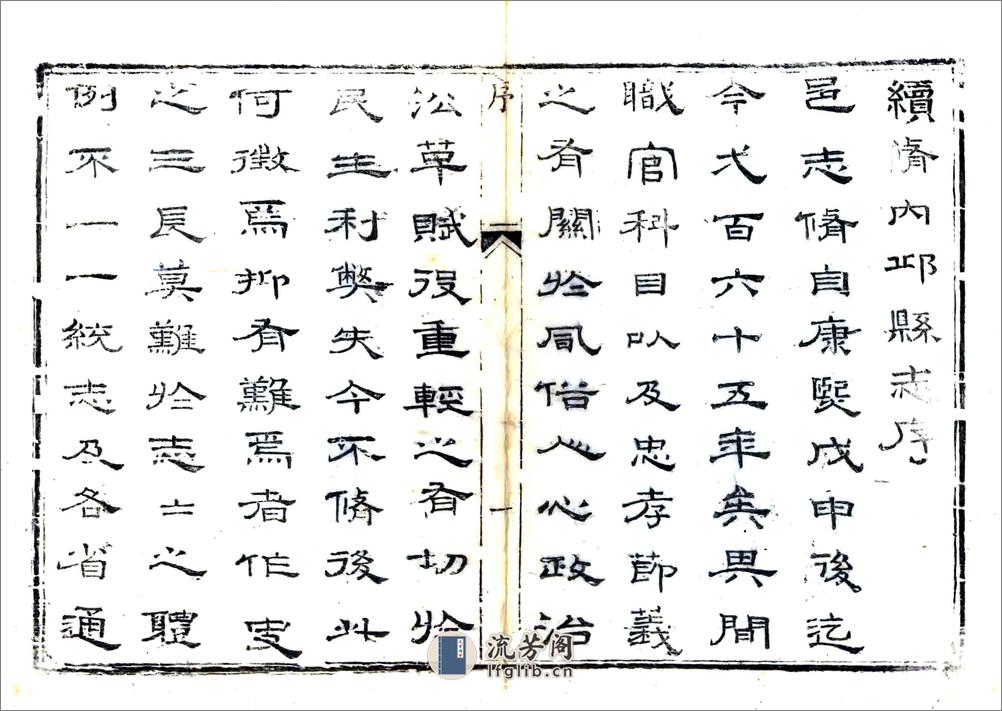 續脩內邱縣志序
邑志脩自康熙戊申後迄
今弌百六十五年矣其間
職官科目以及忠孝節義
之有關於風俗人心政治
序 一
沿革賦役重輕之有切於
民生利弊失今不脩後此
何徵焉抑有難焉者作史
之三長莫難於志志之體
例不一一統志及各省通
流芳阁
lfglib.cn